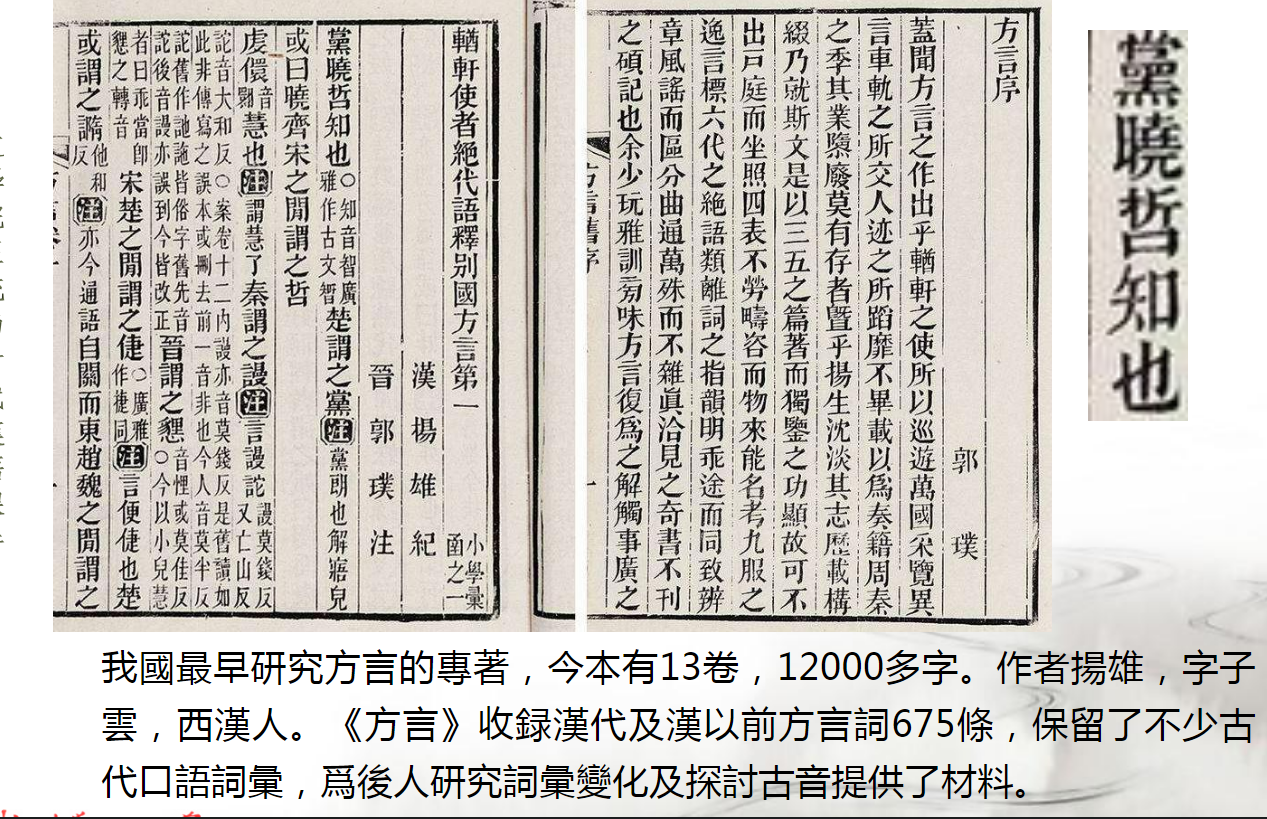 方言序
郭璞
蓋聞方言之作出乎輶軒之使所以巡遊萬國采覽異
言車軌之所交人迹之所蹈靡不畢載以爲奏籍周秦
之季其業隳廢莫有存者曁乎揚生沈淡其志歷載構
綴乃就斯文是以三五之篇著而獨鑒之功顯故可不
出戶庭而坐照四表不勞疇咨而物來能名考九服之
逸言標六代之絶語類離詞之指韻明乖途而同致辨
章風謠而區分曲通萬殊而不雜眞洽見之奇書不刊
之碩記也余少玩雅訓旁味方言復爲之解觸事廣之
輶軒使者絶代語釋别國方言第一小學彙函之一
漢楊雄紀
晉郭璞注
黨曉哲知也○知音智廣雅作古文智楚謂之黨注黨朗也解寤皃
或曰曉齊宋之閒謂之哲
虔儇音翾慧也注謂慧了秦謂之謾注言謾詑謾莫錢反又亡山反
詑音大和反○案卷十二内謾亦音莫錢反是舊讀如此非傳寫之誤本或刪去前一音非也今人音莫半反
詑舊作訑訑皆俗字舊先音詑後音謾亦誤到今皆改正晉謂之㦟音悝或莫佳反○今以小兒慧
者曰乖當卽㦟之轉音宋楚之閒謂之倢○廣雅作㨗同注言便倢也楚
或謂之䜏他和反注亦今通語自關而東趙魏之閒謂之
黨曉哲知也
我國最早研究方言的專著，今本有13卷，12000多字。作者揚雄，字子
雲，西漢人。《方言》收録漢代及漢以前方言詞675條，保留了不少古
代口語詞彙，爲後人研究詞彙變化及探討古音提供了材料。